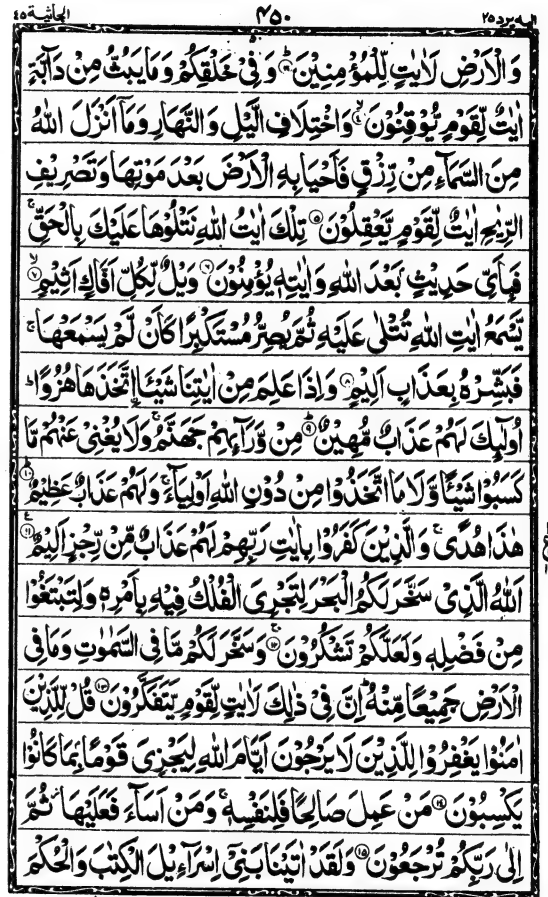 الیه یرد ۲۵ ۴۵۰ الجاثیة ۴۵
وَالْاَرْضِ لَاٰيٰتٍ لِّلْمُؤْمِنِيْنَ ۳ؕ وَفِيْ خَلْقِكُمْ وَمَا يَبُثُّ مِنْ دَآبَّةٍ
اٰيٰتٌ لِّقَوْمٍ يُّوْقِنُوْنَ ۴ۙ وَاخْتِلَافِ الَّيْلِ وَالنَّهَارِ وَمَآ اَنْزَلَ اللّٰهُ
مِنَ السَّمَآءِ مِنْ رِّزْقٍ فَاَحْيَا بِهِ الْاَرْضَ بَعْدَ مَوْتِهَا وَتَصْرِيْفِ
الرِّيٰحِ اٰيٰتٌ لِّقَوْمٍ يَّعْقِلُوْنَ ۵ تِلْكَ اٰيٰتُ اللّٰهِ نَتْلُوْهَا عَلَيْكَ بِالْحَقِّ ۚ
فَبِاَيِّ حَدِيْثٍۢ بَعْدَ اللّٰهِ وَاٰيٰتِهٖ يُؤْمِنُوْنَ ۶ وَيْلٌ لِّكُلِّ اَفَّاكٍ اَثِيْمٍ ۷ۙ
يَّسْمَعُ اٰيٰتِ اللّٰهِ تُتْلٰى عَلَيْهِ ثُمَّ يُصِرُّ مُسْتَكْبِرًا كَاَنْ لَّمْ يَسْمَعْهَا ۚ
فَبَشِّرْهُ بِعَذَابٍ اَلِيْمٍ ۸ وَاِذَا عَلِمَ مِنْ اٰيٰتِنَا شَيْـًٔا اتَّخَذَهَا هُزُوًا ؕ
اُولٰٓئِكَ لَهُمْ عَذَابٌ مُّهِيْنٌ ۹ؕ مِنْ وَّرَآئِهِمْ جَهَنَّمُ ۚ وَلَا يُغْنِيْ عَنْهُمْ مَّا
كَسَبُوْا شَيْـًٔا وَّلَا مَا اتَّخَذُوْا مِنْ دُوْنِ اللّٰهِ اَوْلِيَآءَ ۚ وَلَهُمْ عَذَابٌ عَظِيْمٌ ۱۰ؕ
هٰذَا هُدًى ۚ وَالَّذِيْنَ كَفَرُوْا بِاٰيٰتِ رَبِّهِمْ لَهُمْ عَذَابٌ مِّنْ رِّجْزٍ اَلِيْمٌ ۱۱ ع
اَللّٰهُ الَّذِيْ سَخَّرَ لَكُمُ الْبَحْرَ لِتَجْرِيَ الْفُلْكُ فِيْهِ بِاَمْرِهٖ وَلِتَبْتَغُوْا
مِنْ فَضْلِهٖ وَلَعَلَّكُمْ تَشْكُرُوْنَ ۱۲ۚ وَسَخَّرَ لَكُمْ مَّا فِي السَّمٰوٰتِ وَمَا فِي
الْاَرْضِ جَمِيْعًا مِّنْهُ ؕ اِنَّ فِيْ ذٰلِكَ لَاٰيٰتٍ لِّقَوْمٍ يَّتَفَكَّرُوْنَ ۱۳ قُلْ لِّلَّذِيْنَ
اٰمَنُوْا يَغْفِرُوْا لِلَّذِيْنَ لَا يَرْجُوْنَ اَيَّامَ اللّٰهِ لِيَجْزِيَ قَوْمًۢا بِمَا كَانُوْا
يَكْسِبُوْنَ ۱۴ مَنْ عَمِلَ صَالِحًا فَلِنَفْسِهٖ ۚ وَمَنْ اَسَآءَ فَعَلَيْهَا ۡ ثُمَّ
اِلٰى رَبِّكُمْ تُرْجَعُوْنَ ۱۵ وَلَقَدْ اٰتَيْنَا بَنِيْٓ اِسْرَآءِيْلَ الْكِتٰبَ وَالْحُكْمَ